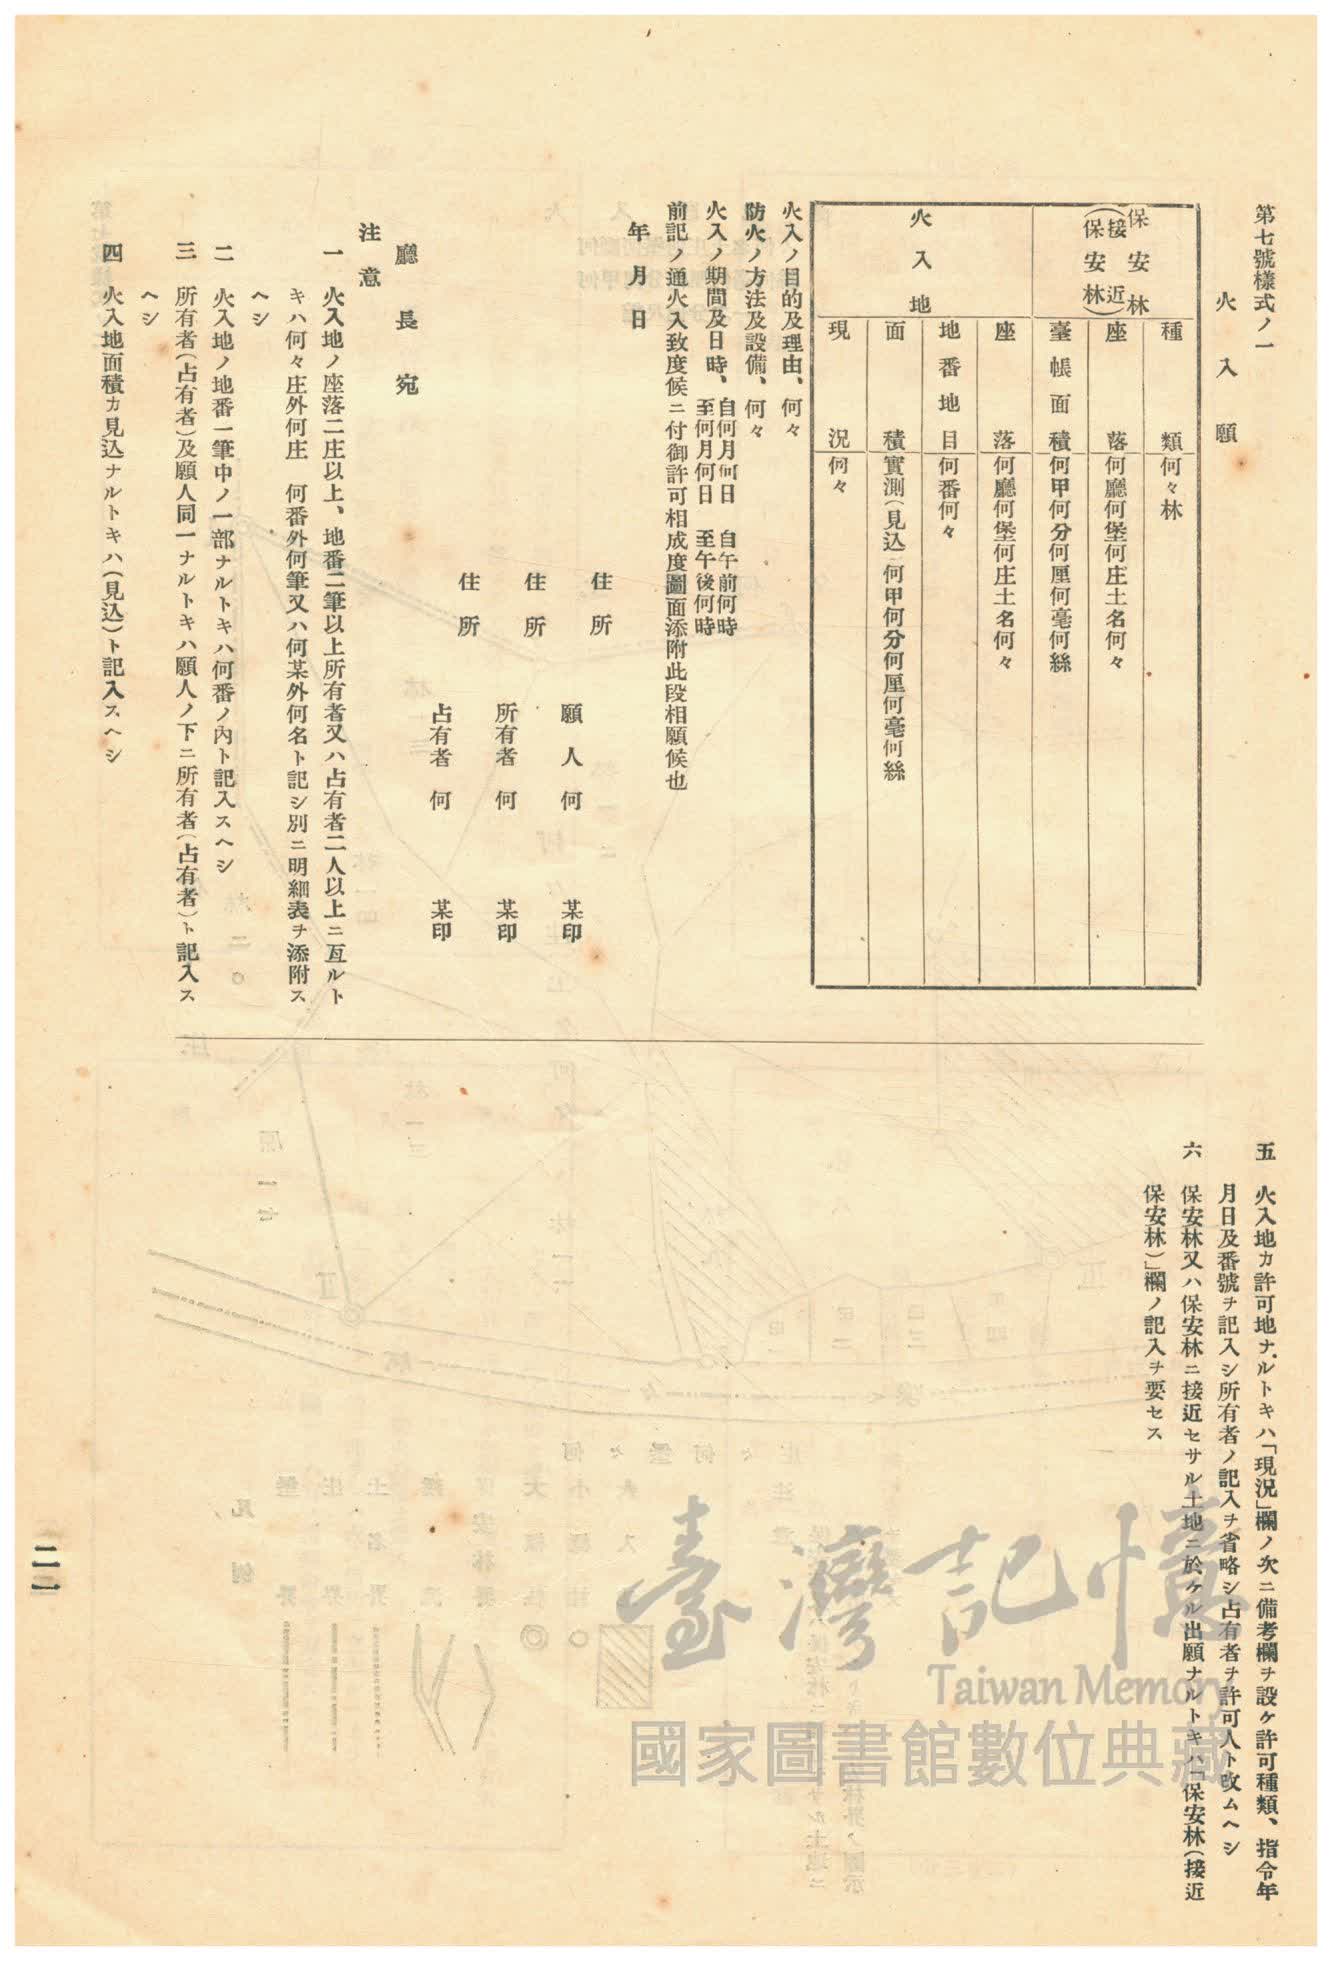 第七號樣式ノ一
火入願
保安林
(接近保安林)
種類 何々林
座落 何廳何堡何庄土名何々
臺帳面積 何甲何分何厘何毫何絲
火入地
座落 何廳何堡何庄土名何々
地番地目 何番何々
面積 實測(見込)何甲何分何厘何毫何絲
現況 何々
火入ノ目的及理由、何々
防火ノ方法及設備、何々
火入ノ期間及日時、自何月何日 自午前何時
至何月何日 至午後何時
前記ノ通火入致度候ニ付御許可相成度圖面添附此段相願候也
年月日
住所
願人何 某印
住所
所有者 何 某印
住所
占有者 何 某印
廳長宛
注意
一 火入地ノ座落二庄以上、地番二筆以上所有者又ハ占有者二人以上ニ亙ルト
キハ何々庄外何庄 何番外何筆又ハ何某外何名ト記シ別ニ明細表ヲ添附ス
ヘシ
二 火入地ノ地番一筆中ノ一部ナルトキハ何番ノ內ト記入スヘシ
三 所有者(占有者)及願人同一ナルトキハ願人ノ下ニ所有者(占有者)ト記入ス
ヘシ
四 火入地面積カ見込ナルトキハ(見込)ト記入スヘシ
五 火入地カ許可地ナルトキハ「現況」欄ノ次ニ備考欄ヲ設ケ許可種類、指令年
月日及番號ヲ記入シ所有者ノ記入ヲ省略シ占有者ヲ許可人ト改ムヘシ
六 保安林又ハ保安林ニ接近セサル土地ニ於ケル出願ナルトキハ「保安林(接近
保安林)」欄ノ記入ヲ要セス
二一
臺灣記憶
Taiwan Memory
國家圖書館數位典藏